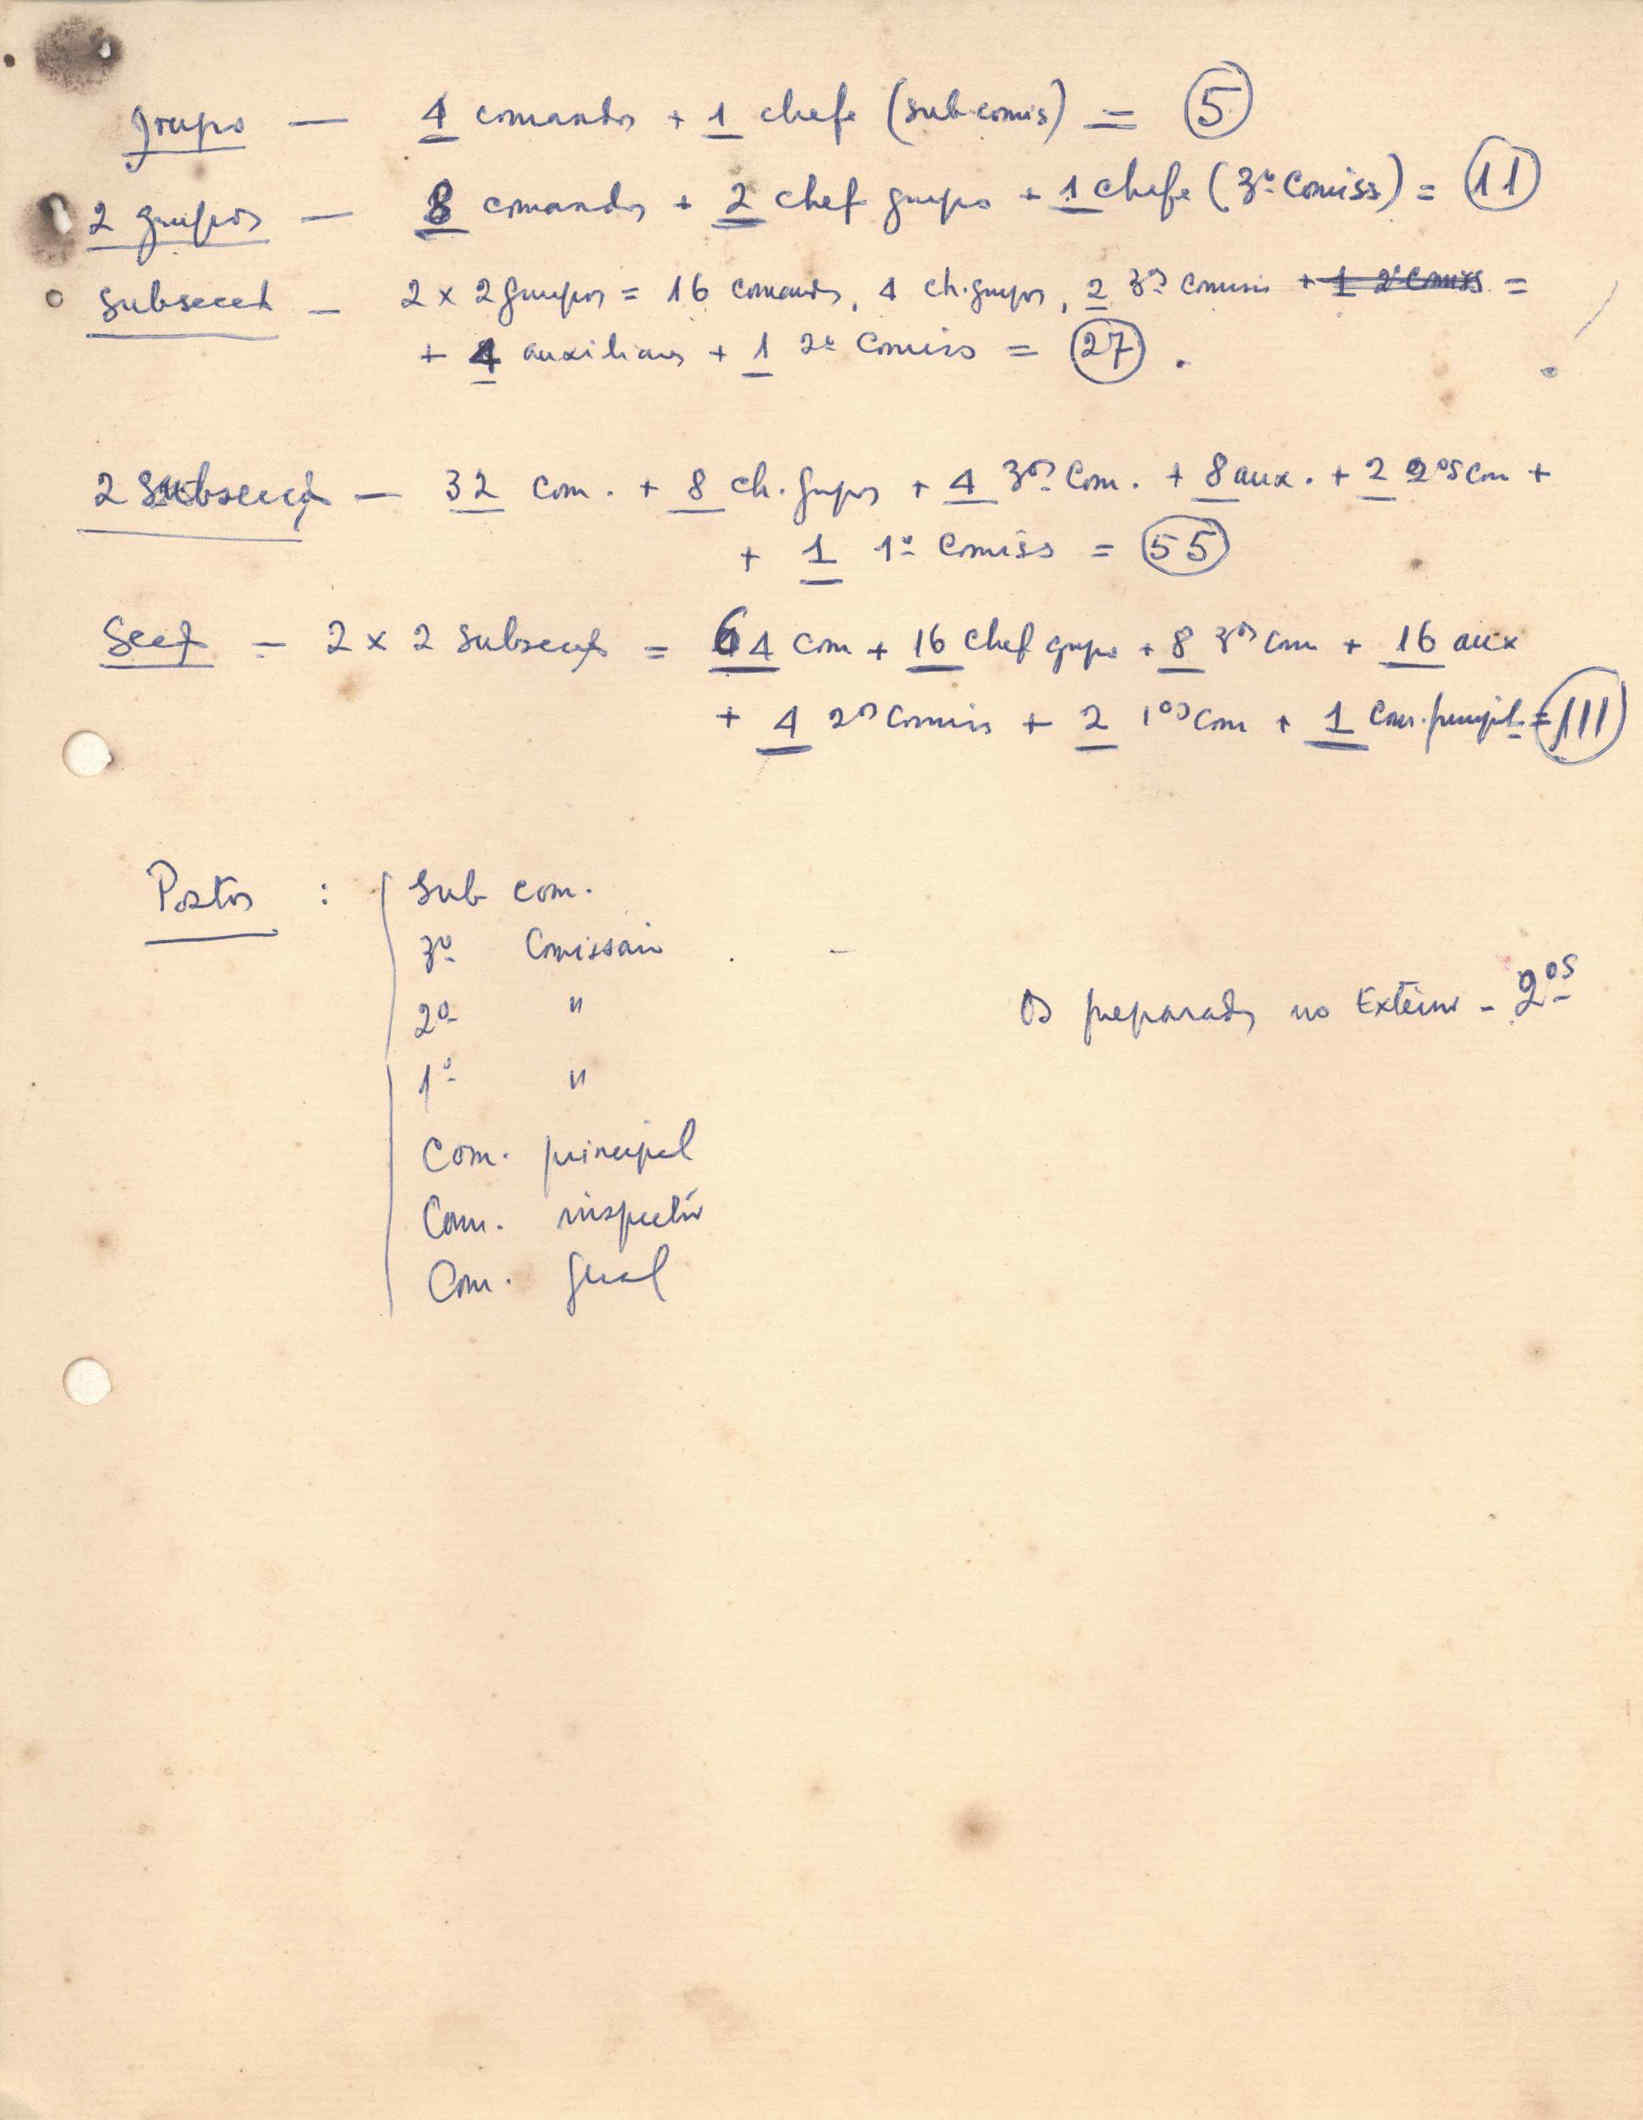 grupo — 4 comandos + 1 chefe (sub-comis) = 5
2 grupos — 8 comandos + 2 chef grupo + 1 chefe (3º Comiss) = 11
Subsecct — 2 x 2 grupos = 16 comands, 4 ch. grupos, 2 3os comiss + 1 2º Comiss =
+ 4 auxiliares + 1 2º Comiss = 27.
2 Subsecç — 32 com. + 8 ch. grupos + 4 3os Com. + 8 aux. + 2 2os Com +
+ 1 1º Comiss = 55
Secç — 2 x 2 subsecçs = 64 com + 16 chef grupo + 8 3os com + 16 aux
+ 4 2os Comiss + 2 1os com + 1 Com. principl. = 111
Postos : Sub com.
3º Comissário
2º "
Os preparados no Exterior - 2os
1º "
Com. principal
Com. inspector
Com. Geral